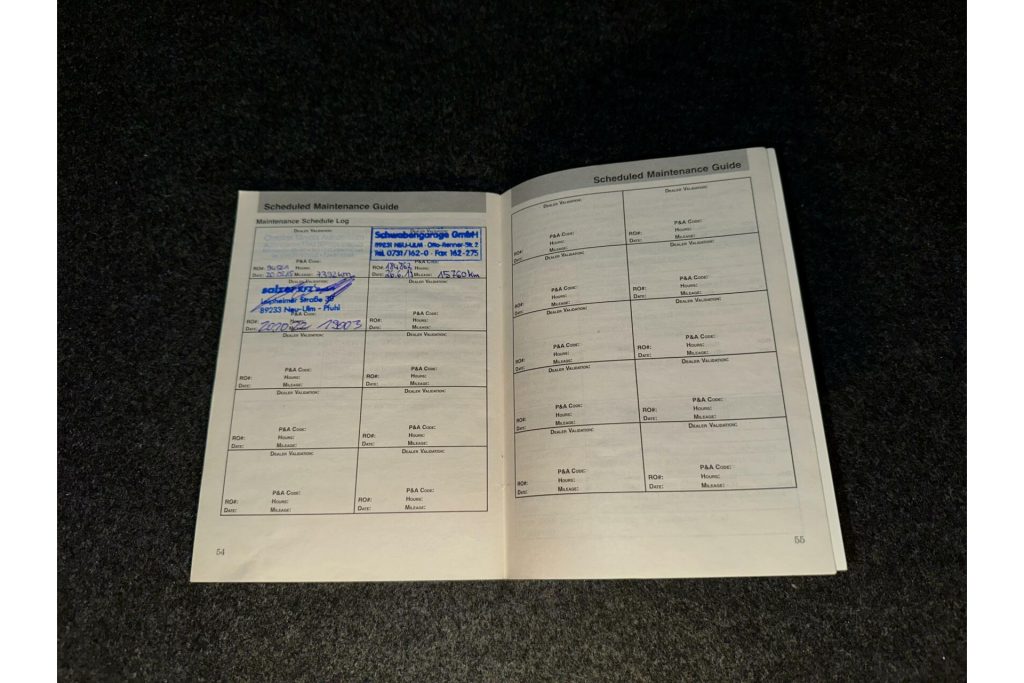 Scheduled Maintenance Guide
Maintenance Schedule Log
DEALER VALIDATION:
P&A CODE:
RO#: HOURS:
DATE: MILEAGE: 7392 km
DEALER VALIDATION:
Schwabengarage GmbH
89231 NEU-ULM · Otto-Renner-Str. 2
Tel. 0731/162-0 · Fax 162-275
P&A CODE:
RO#: HOURS:
DATE: 26.6.13 MILEAGE: 15760 km
DEALER VALIDATION:
salzer KFZ
Leipheimer Straße
89233 Neu-Ulm - Pfuhl
P&A CODE:
RO#: HOURS:
DATE: MILEAGE: 19003
DEALER VALIDATION:
P&A CODE:
RO#: HOURS:
DATE: MILEAGE:
DEALER VALIDATION:
P&A CODE:
RO#: HOURS:
DATE: MILEAGE:
DEALER VALIDATION:
P&A CODE:
RO#: HOURS:
DATE: MILEAGE:
DEALER VALIDATION:
P&A CODE:
RO#: HOURS:
DATE: MILEAGE:
DEALER VALIDATION:
P&A CODE:
RO#: HOURS:
DATE: MILEAGE:
DEALER VALIDATION:
P&A CODE:
RO#: HOURS:
DATE: MILEAGE:
DEALER VALIDATION:
P&A CODE:
RO#: HOURS:
DATE: MILEAGE:
54
Scheduled Maintenance Guide
DEALER VALIDATION:
P&A CODE:
RO#: HOURS:
DATE: MILEAGE:
DEALER VALIDATION:
P&A CODE:
RO#: HOURS:
DATE: MILEAGE:
DEALER VALIDATION:
P&A CODE:
RO#: HOURS:
DATE: MILEAGE:
DEALER VALIDATION:
P&A CODE:
RO#: HOURS:
DATE: MILEAGE:
DEALER VALIDATION:
P&A CODE:
RO#: HOURS:
DATE: MILEAGE:
DEALER VALIDATION:
P&A CODE:
RO#: HOURS:
DATE: MILEAGE:
DEALER VALIDATION:
P&A CODE:
RO#: HOURS:
DATE: MILEAGE:
DEALER VALIDATION:
P&A CODE:
RO#: HOURS:
DATE: MILEAGE:
DEALER VALIDATION:
P&A CODE:
RO#: HOURS:
DATE: MILEAGE:
DEALER VALIDATION:
P&A CODE:
RO#: HOURS:
DATE: MILEAGE:
55